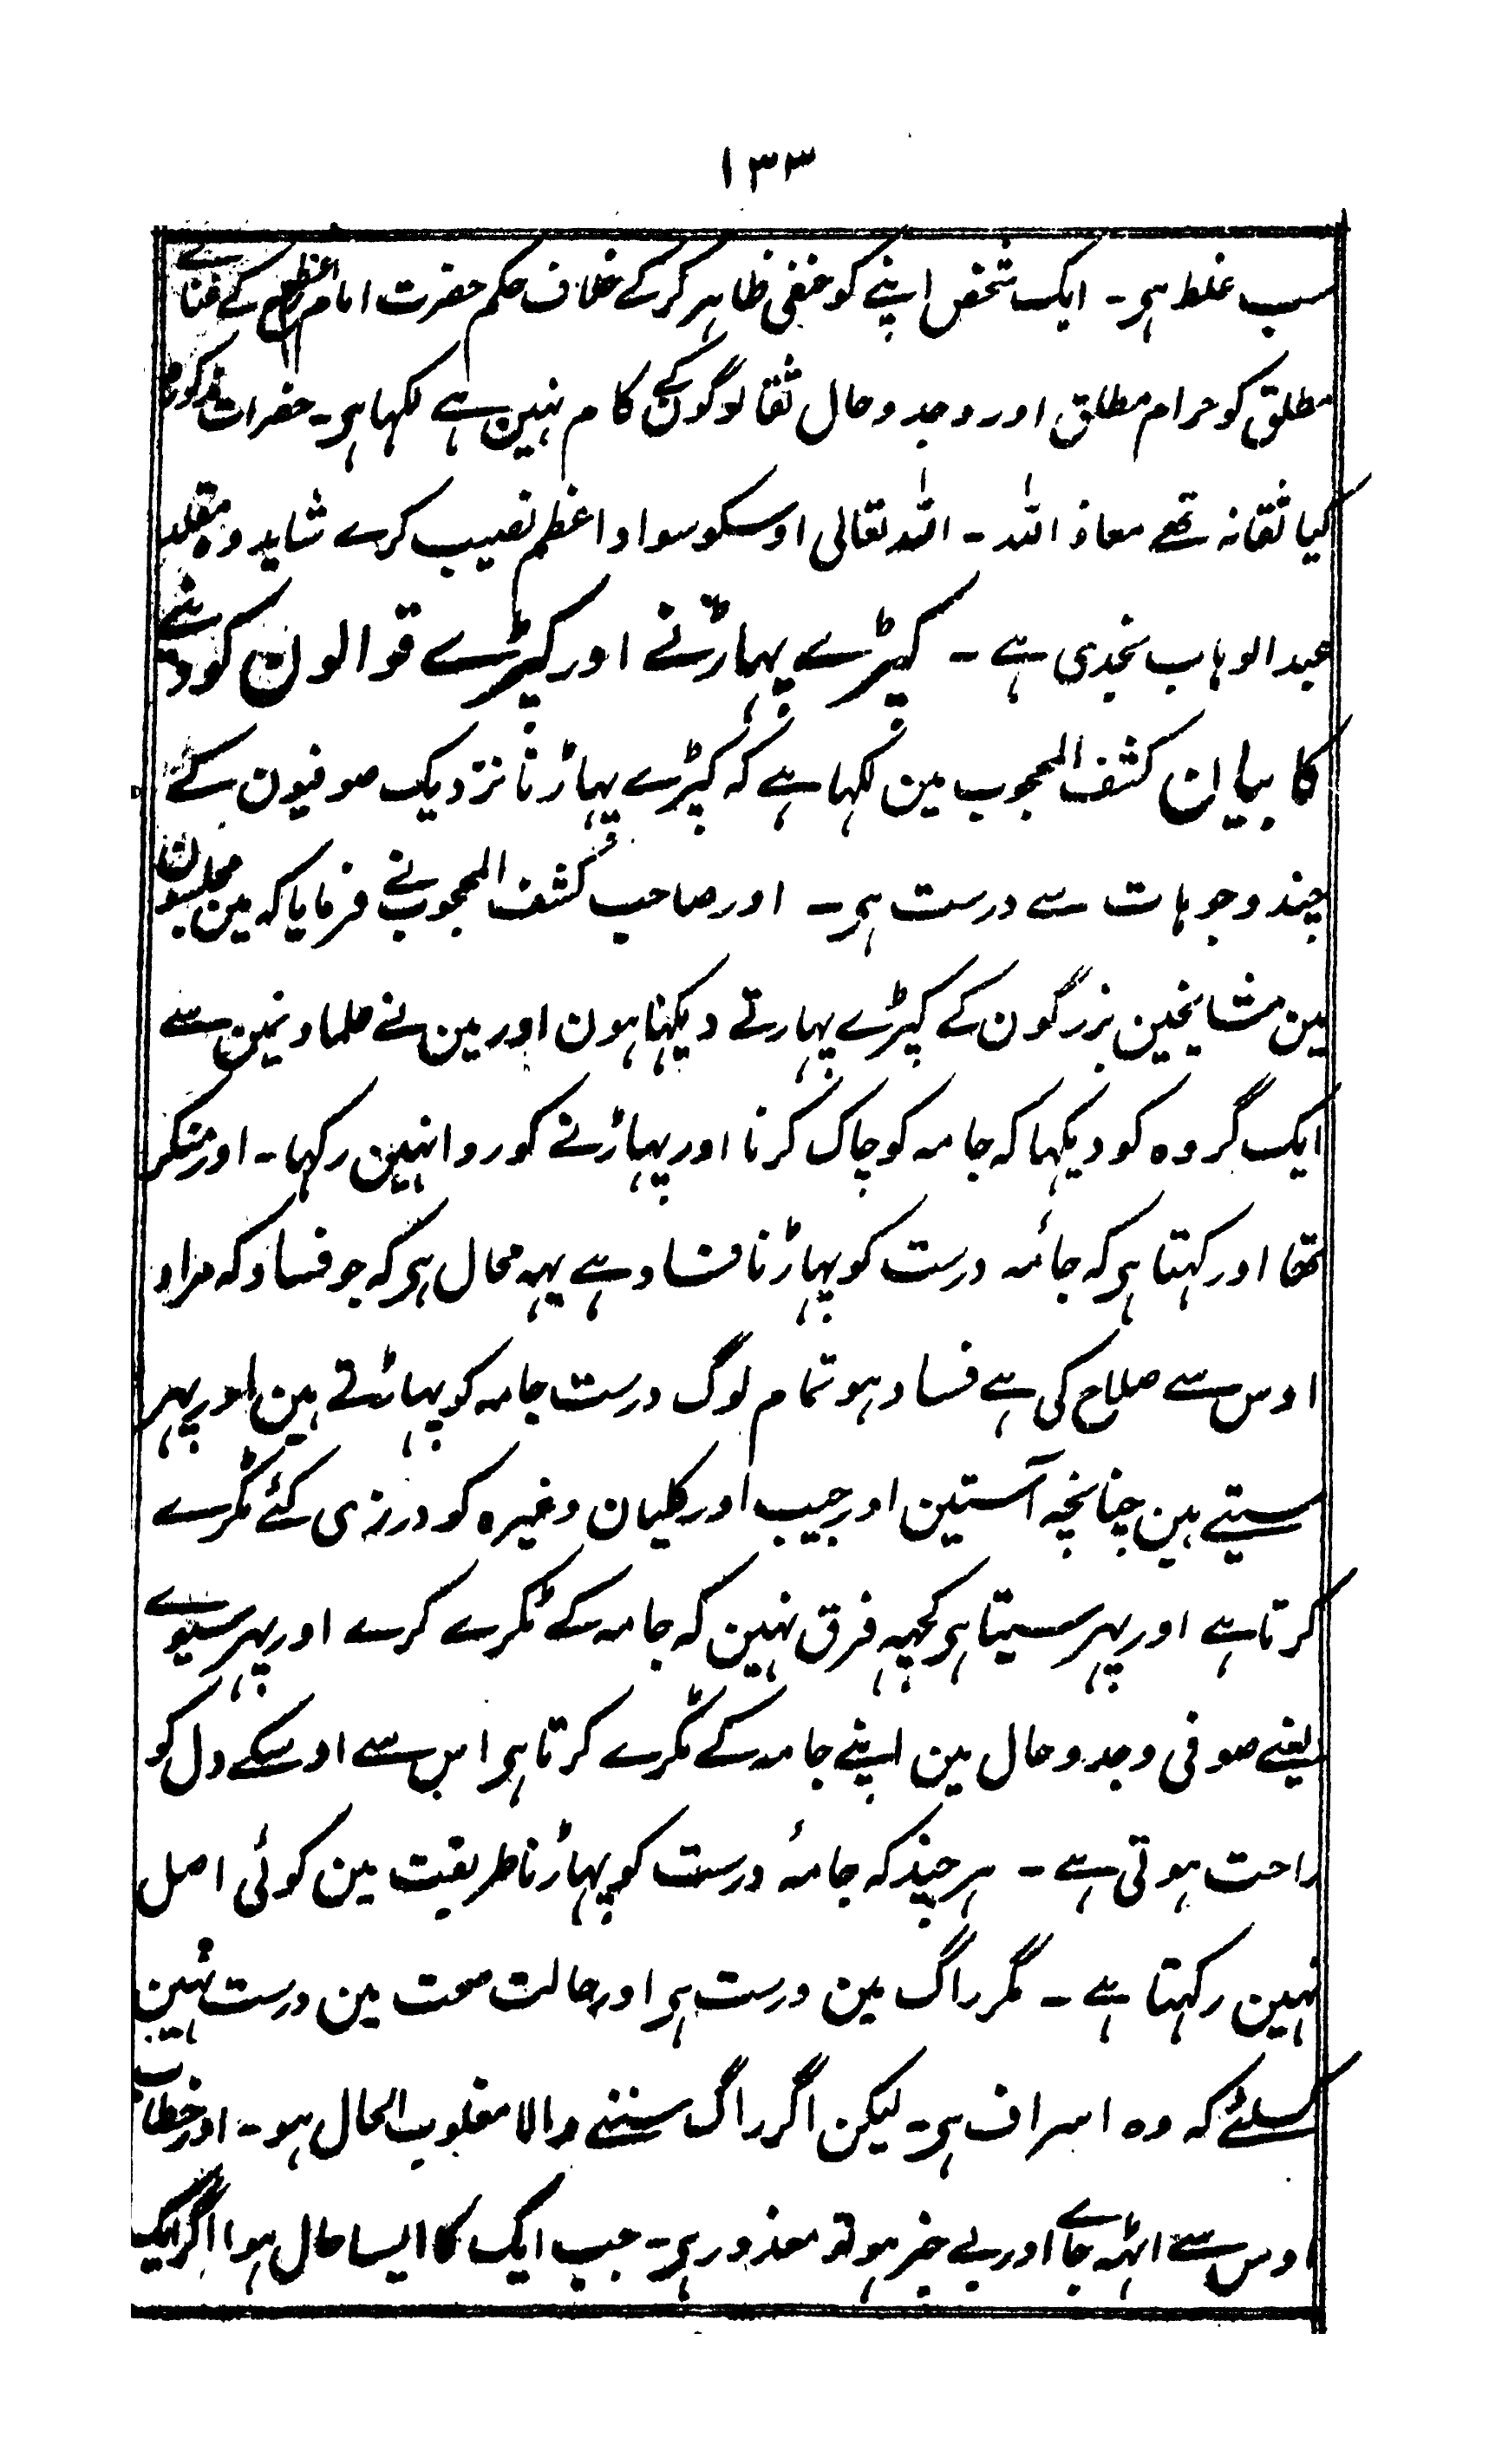 ۱۳۳
سب غلط ہی۔ ایک شخص اپنے کو حنفی ظاہر کرکے خلاف حکم حضرت امام اعظم کے غناے
مطلق کو حرام مطلق اور وجد و حال ثقا لوگون کے کام نہین ہے لکہا ہی۔ حضرات مذکورہ
کیا ثقا نہ تھے معاذ اللہ۔ اللہ تعالی اوسکو سواد اعظم نصیب کرے شاید وہ مقلد
عبد الوہاب نجدی ہے۔ کپڑے پہاڑنے اور کپڑے قوالون کو دینے
کا بیان کشف المحجوب مین لکہا ہے کہ کپڑے پہاڑنا نزدیک صوفیون کے
چند وجوہات سے درست ہی۔ اور صاحب کشف المحجوب نے فرمایا کہ مین مجلسون
مین مشایخین بزرگون کے کپڑے پہارتے دیکہا ہون اور مین نے علماء دین سے
ایک گروہ کو دیکہا کہ جامہ کو چاک کرنا اور پہاڑنے کو روا نہین رکہا۔ اور منکر
تھا اور کہتا ہی کہ جامۂ درست کو پہاڑنا فساد ہے یہہ محال ہی کہ جو فساد کہ مراد
اوس سے صلاح کی ہے فساد ہو تمام لوگ درست جامہ کو پہاڑتے ہین اور پہر
سیتے ہین چنانچہ آستین اور جیب اور کلیان وغیرہ کو درزی کئے ٹکرے
کرتا ہے اور پہر سیتا ہی کچہہ فرق نہین کہ جامہ کے ٹکرے کرے اور پہر سیوے
یعنے صوفی وجد و حال مین اپنے جامہ کے ٹکرے کرتا ہی اس سے اوسکے دل کو
راحت ہوتی ہے۔ ہر چند کہ جامۂ درست کو پہاڑنا طریقت مین کوئی اصل
نہین رکہتا ہے۔ مگر راگ مین درست ہی اور حالت صحت مین درست نہین
کسلئے کہ وہ اسراف ہی۔ لیکن اگر راگ سننے والا مغلوب الحال ہو۔ اور خطاب
اوس سے اٹہہ جاے اور بے خبر ہو تو معذور ہی۔ جب ایک کا ایسا حال ہوا اگر ایک